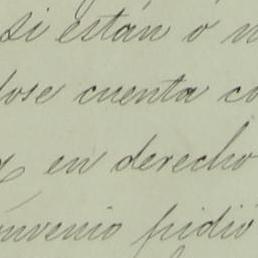 si están ó n
dose cuenta co
en derecho
onvenio pidió